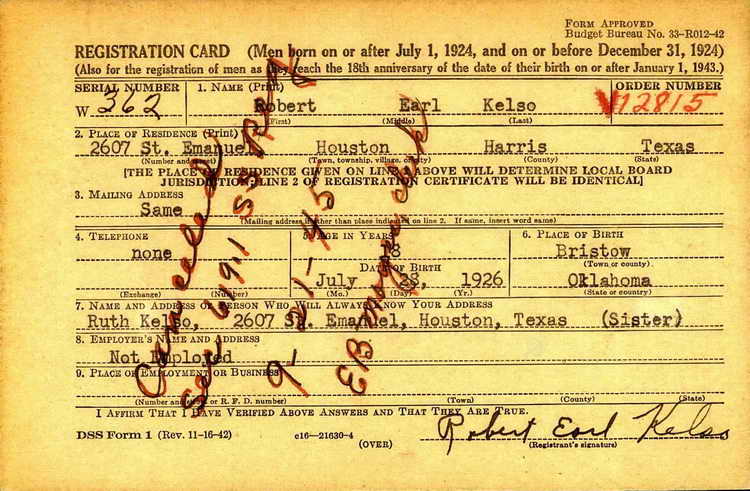 FORM APPROVED
Budget Bureau No. 33-R012-42
REGISTRATION CARD (Men born on or after July 1, 1924, and on or before December 31, 1924)
(Also for the registration of men as they reach the 18th anniversary of the date of their birth on or after January 1, 1943.)
SERIAL NUMBER 1. NAME (Print) ORDER NUMBER
W 362 Robert Earl Kelso 12815
(First) (Middle) (Last)
2. PLACE OF RESIDENCE (Print)
2607 St. Emanuel Houston Harris Texas
(Number and street) (Town, township, village, or city) (County) (State)
[THE PLACE OF RESIDENCE GIVEN ON LINE 2 ABOVE WILL DETERMINE LOCAL BOARD
JURISDICTION; LINE 2 OF REGISTRATION CERTIFICATE WILL BE IDENTICAL]
3. MAILING ADDRESS
Same
(Mailing address if other than place indicated on line 2. If same, insert word same)
4. TELEPHONE 5. AGE IN YEARS 6. PLACE OF BIRTH
none 18 Bristow
DATE OF BIRTH (Town or county)
July 28, 1926 Oklahoma
(Exchange) (Number) (Mo.) (Day) (Yr.) (State or country)
7. NAME AND ADDRESS OF PERSON WHO WILL ALWAYS KNOW YOUR ADDRESS
Ruth Kelso, 2607 St. Emanuel, Houston, Texas (Sister)
8. EMPLOYER'S NAME AND ADDRESS
Not Employed
9. PLACE OF EMPLOYMENT OR BUSINESS
(Number and street or R. F. D. number) (Town) (County) (State)
I AFFIRM THAT I HAVE VERIFIED ABOVE ANSWERS AND THAT THEY ARE TRUE.
DSS Form 1 (Rev. 11-16-42) c16-21630-4 Robert Earl Kelso
(OVER) (Registrant's signature)
Cancelled
See
9-21-45
clerk